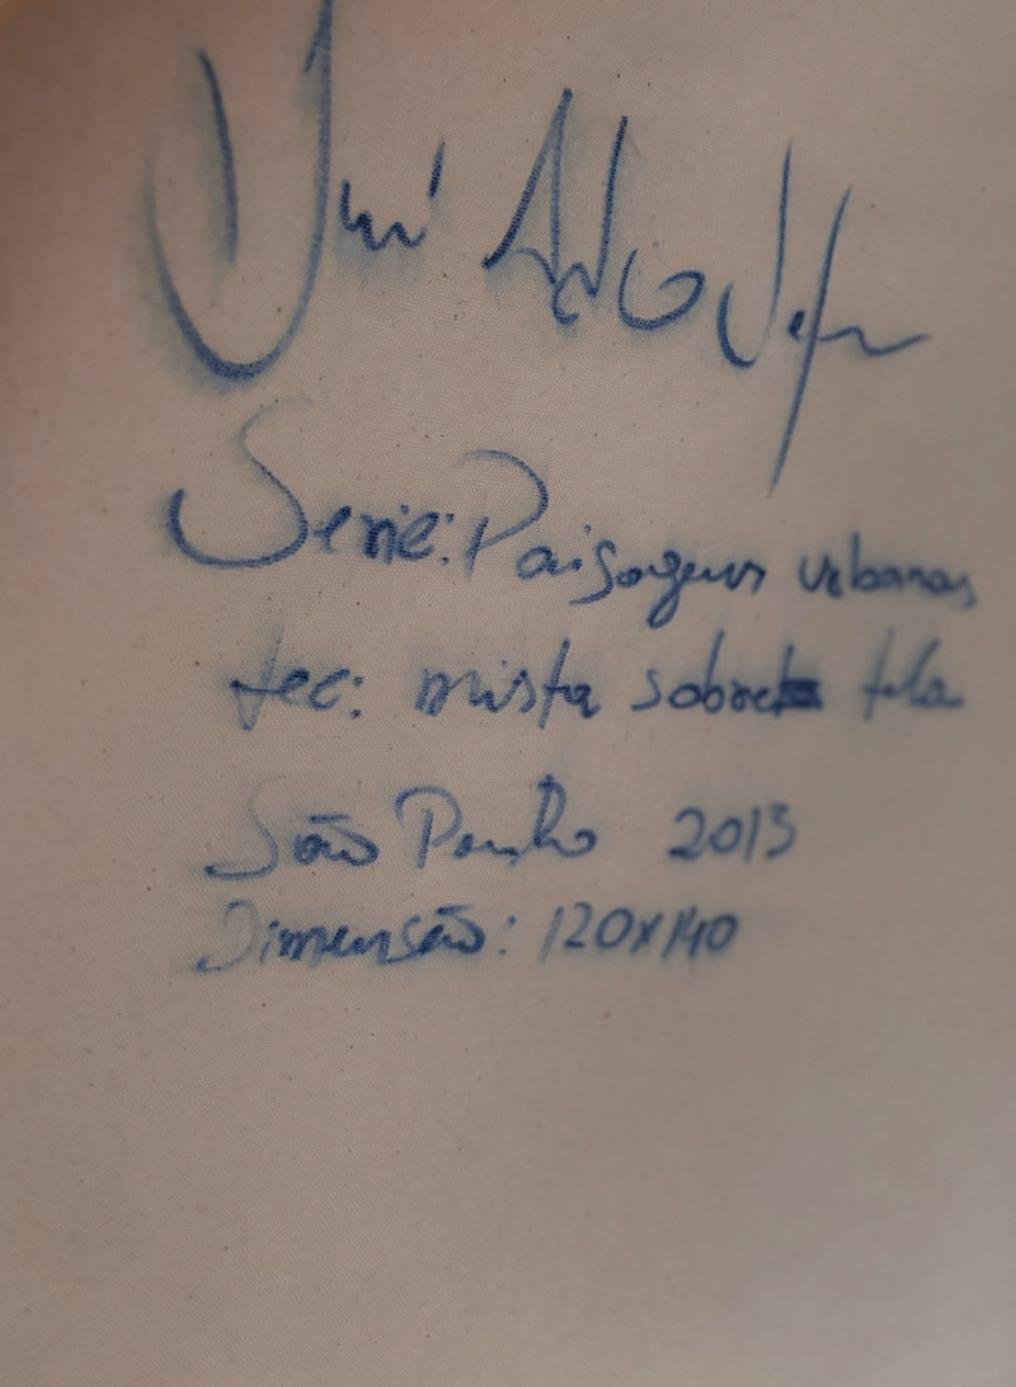 Serie: Paisagens urbanas
tec: mista sobre tela
São Paulo 2013
Dimensão: 120x140